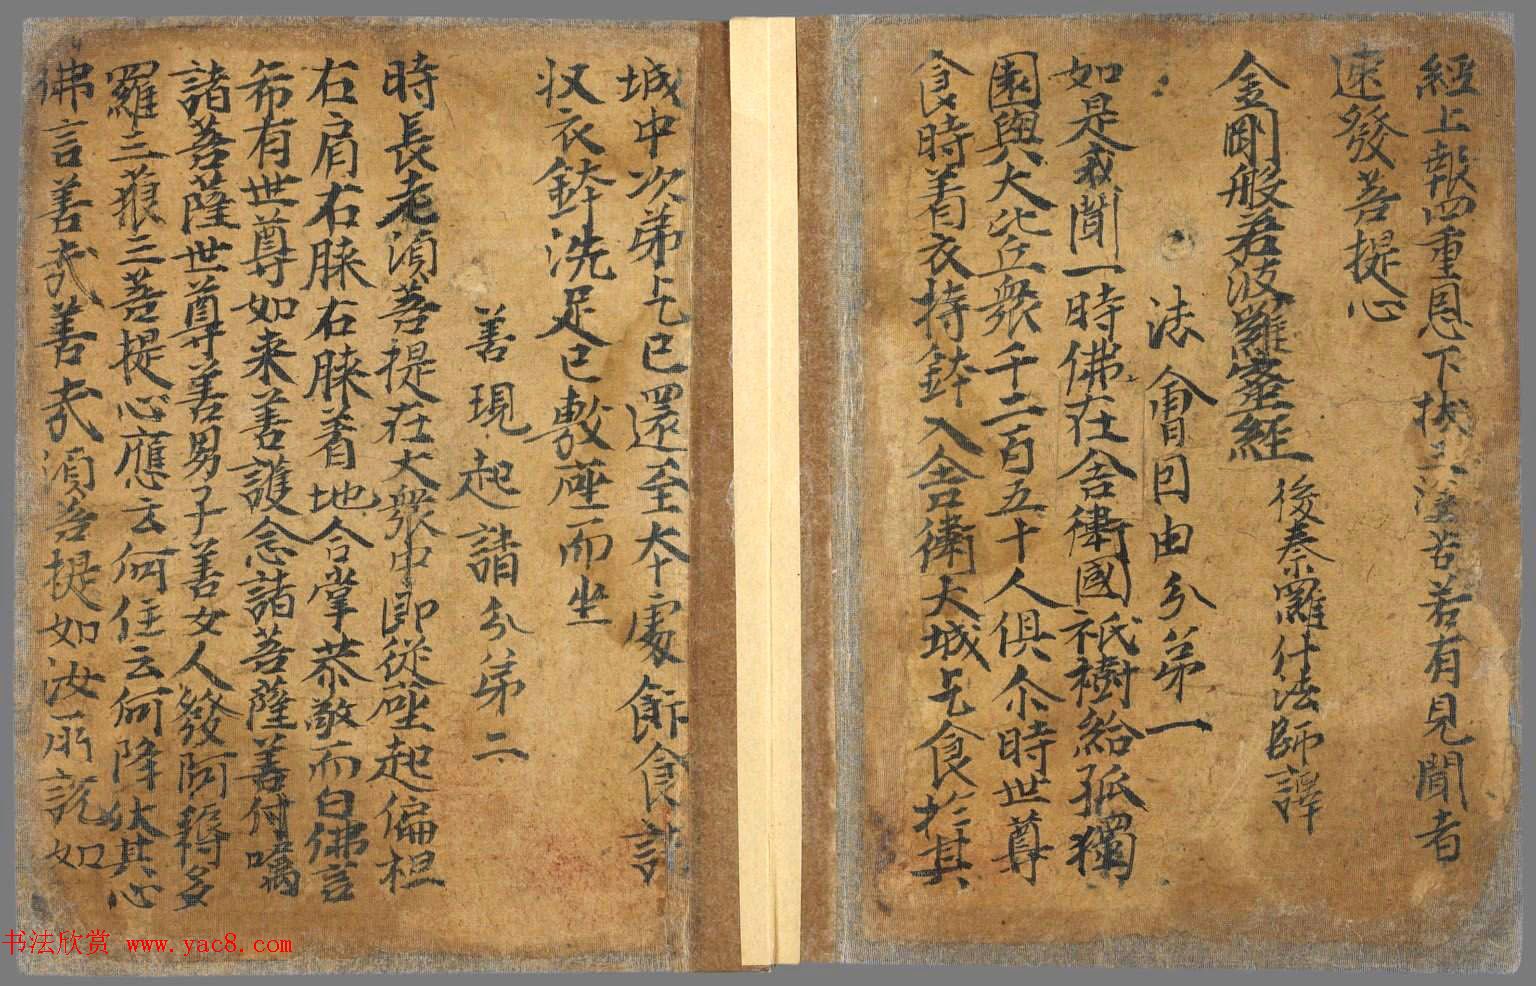 經上報四重恩下拔三塗苦若有見聞者
速發菩提心
金剛般若波羅蜜經 後秦羅什法師譯
法會因由分第一
如是我聞一時佛在舍衛國祇樹給孤獨
園與大比丘衆千二百五十人俱尒時世尊
食時着衣持鉢入舍衛大城乞食於其
城中次弟乞已還至本處飰食訖
収衣鉢洗足已敷座而坐
善現起請分弟二
時長老湏菩提在大衆中即從座起偏袒
右肩右膝右膝着地合掌恭敬而白佛言
希有世尊如来善護念諸菩薩善付囑
諸菩薩世尊善男子善女人發阿耨多
羅三藐三菩提心應云何住云何降伏其心
佛言善哉善哉湏菩提如汝所說如
书法欣赏 www.yac8.com